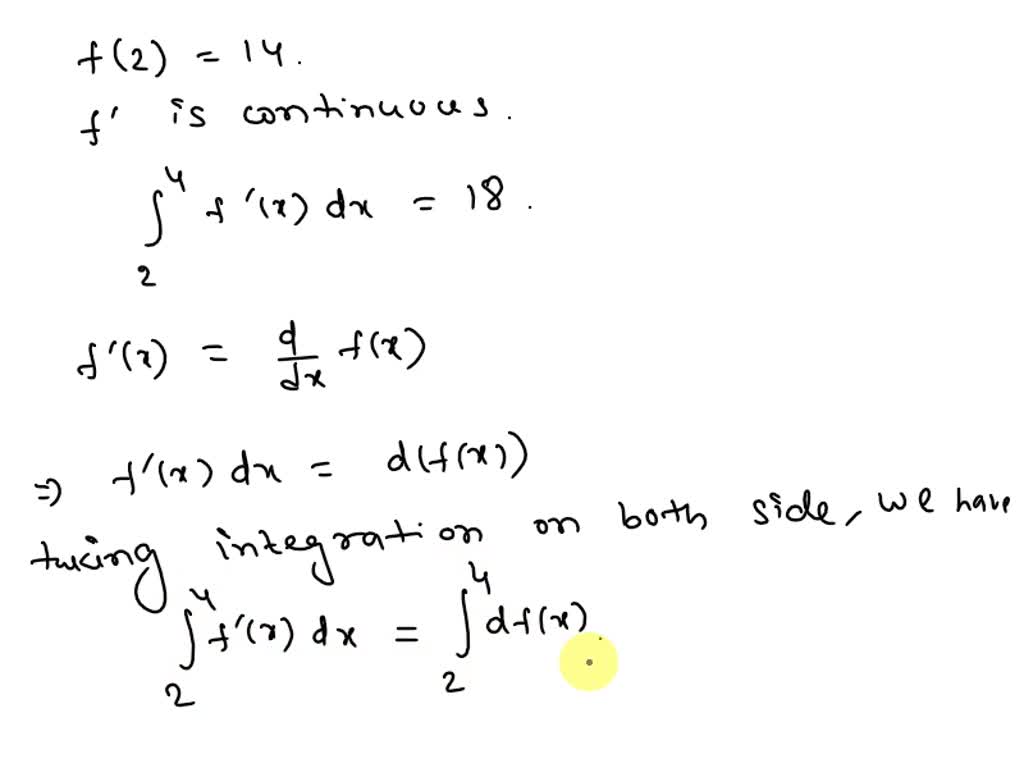 f(2) = 14.
f' is continuous.
∫₂⁴ f'(x) dx = 18.
f'(x) = d/dx f(x)
⇒ f'(x) dx = d(f(x))
tucing integration on both side, we have
∫₂⁴ f'(x) dx = ∫₂⁴ df(x).